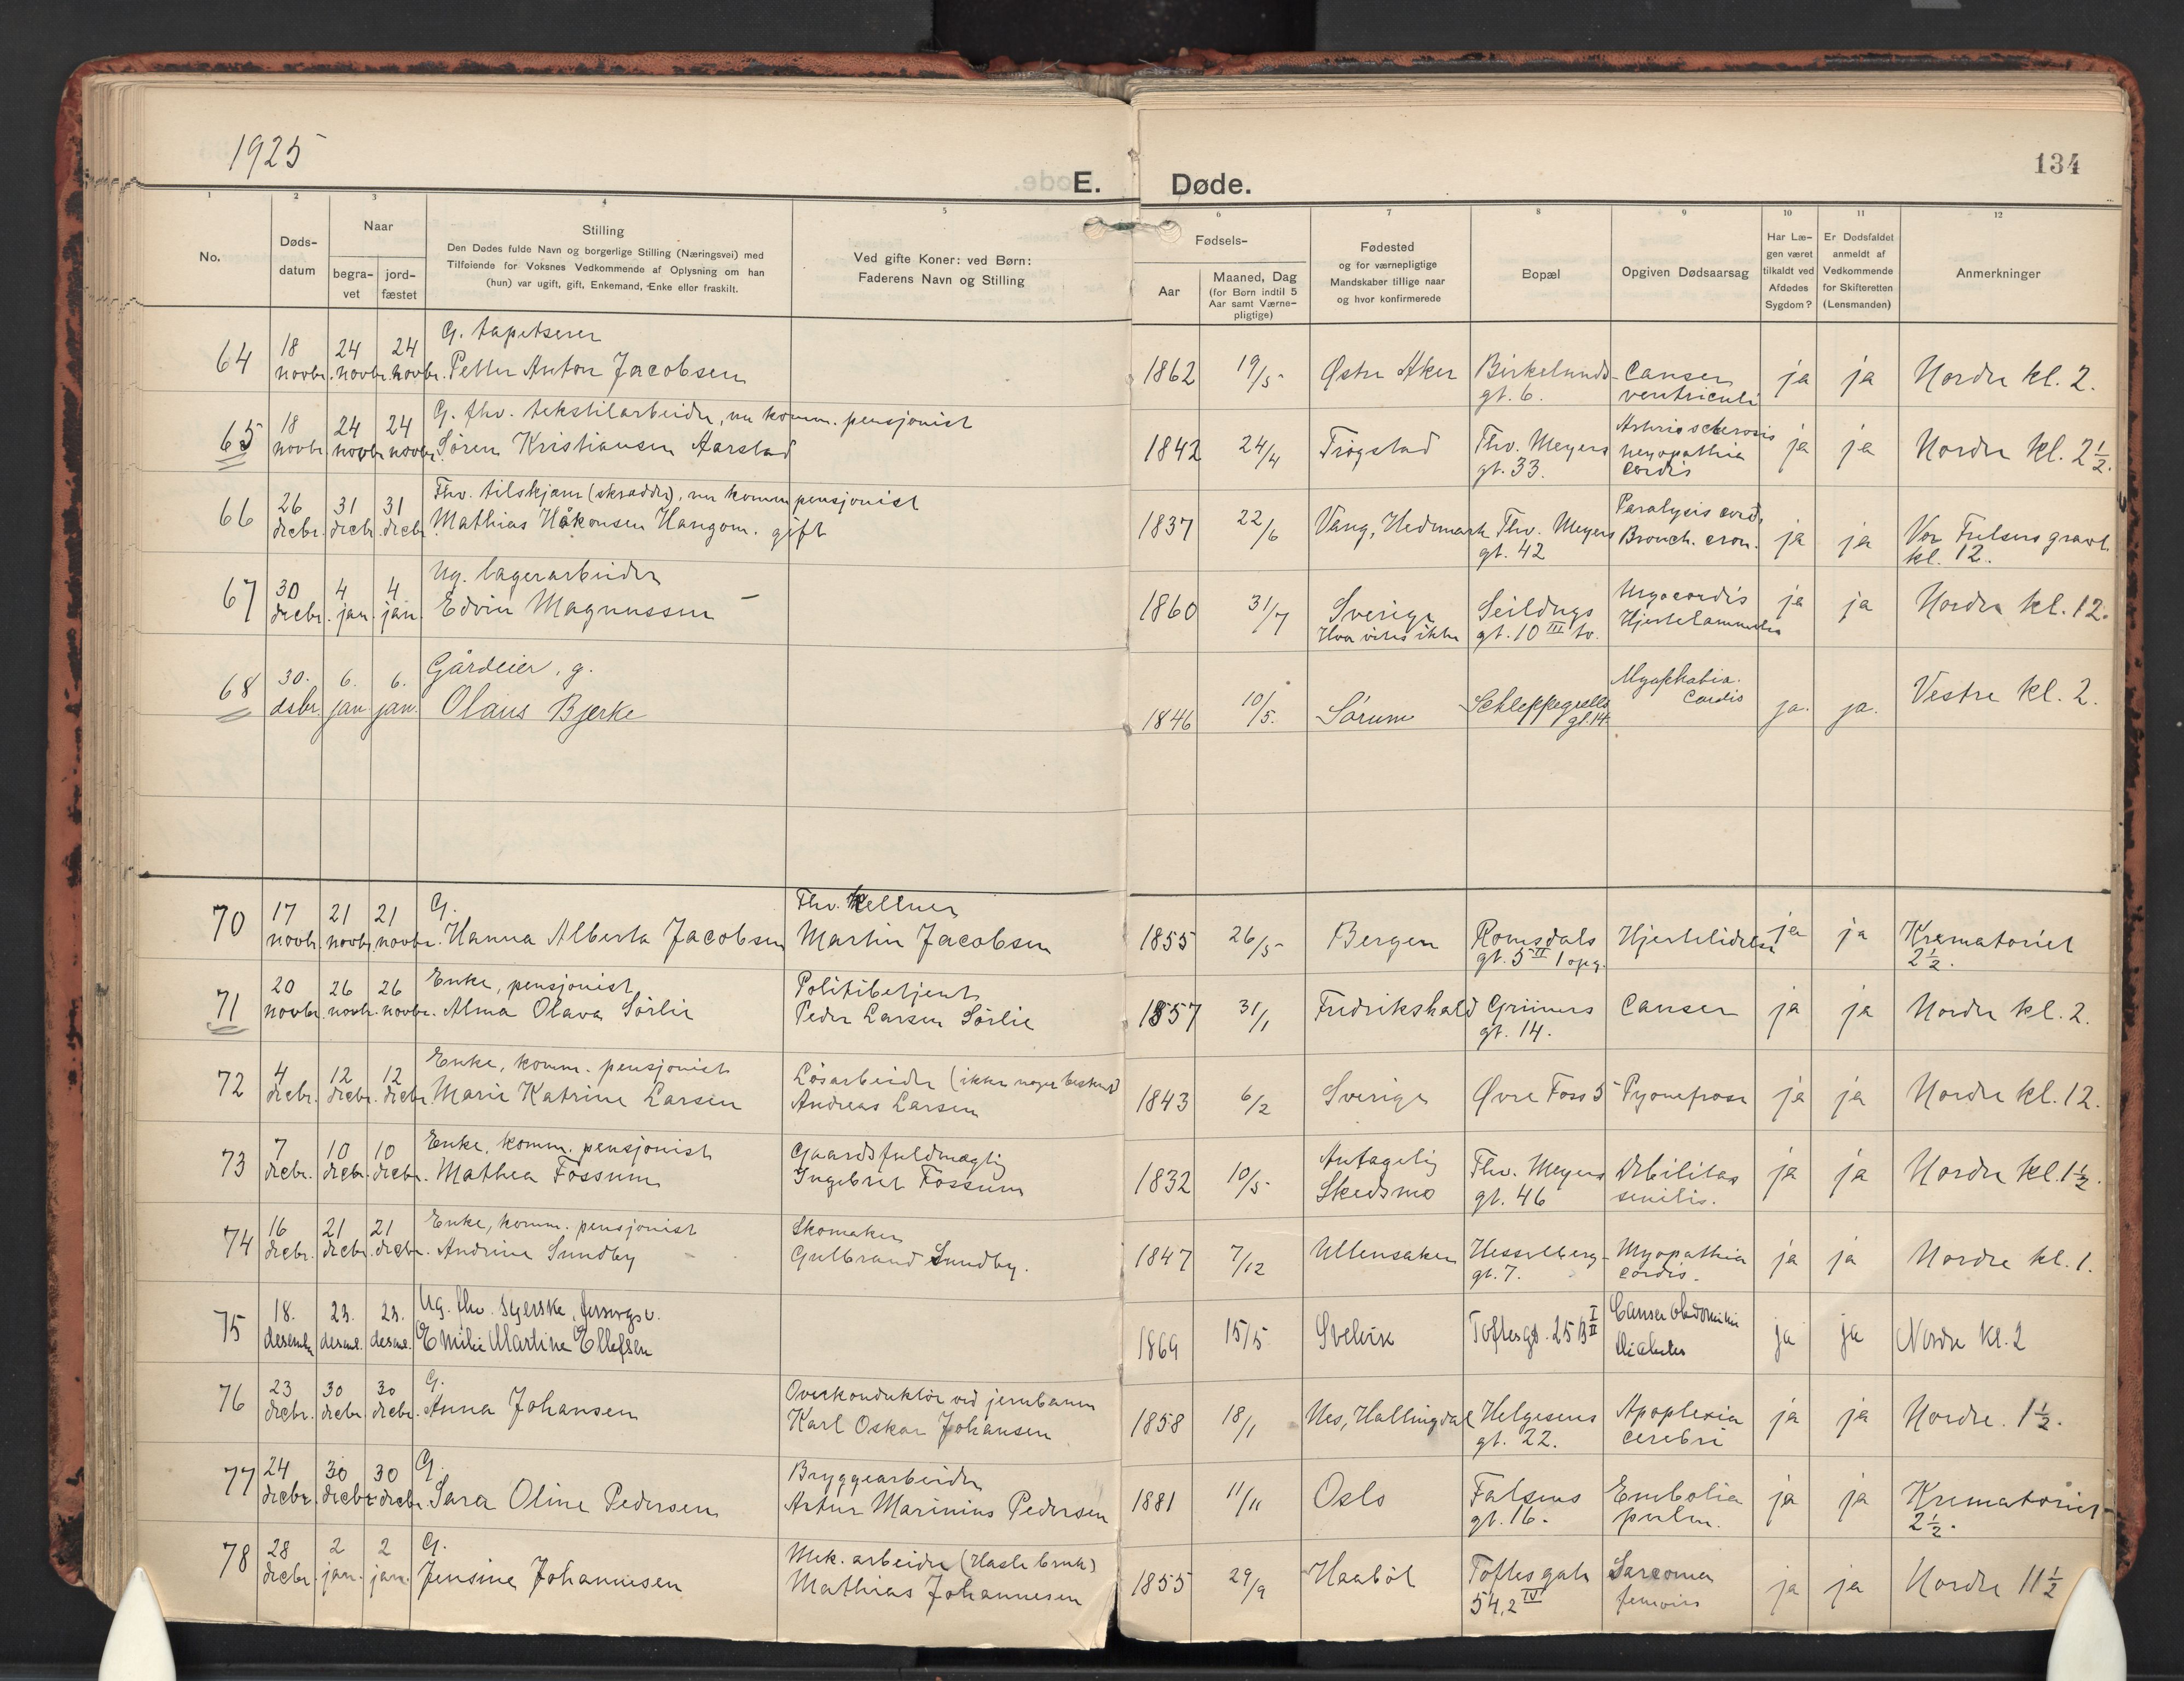 1925
134
E. Døde.
1 2 3 4 5 6 7 8 9 10 11 12
No.
Døds-
datum
Naar
begra-
vet
jord-
fæstet
Stilling
Den Dødes fulde Navn og borgerlige Stilling (Næringsvei) med
Tilføiende for Voksnes Vedkommende af Oplysning om han
(hun) var ugift, gift, Enkemand, Enke eller fraskilt.
Ved gifte Koner: ved Børn:
Faderens Navn og Stilling
Fødsels-
Aar
Maaned, Dag
(for Børn indtil 5
Aar samt Værne-
pligtige)
Fødested
og for værnepligtige
Mandskaber tillige naar
og hvor konfirmerede
Bopæl
Opgiven Dødsaarsag
Har Læ-
gen været
tilkaldt ved
Afdødes
Sygdom?
Er Dødsfaldet
anmeldt af
Vedkommende
for Skifteretten
(Lensmanden)
Anmerkninger
64 18 novbr. 24 novbr. 24 novbr.
G. tapetserer
Petter Anton Jacobsen
1862 19/5 Østre Aker
Birkelunds-
gt. 6.
Canser
ventriculi
ja ja Nordre kl. 2.
65 18 novbr. 24 novbr. 24 novbr.
G. fhv. tekstilarbeider, nu komm. pensjonist
Søren Kristiansen Aarstad
1842 24/4 Trøgstad
Thv. Meyers
gt. 33.
Arteriosclerosis
myopathia
cordis
ja ja Nordre kl. 2½.
66 26 decbr. 31 decbr. 31 decbr.
Fhv. tilskjærer (skrædder), nu komm pensjonist
Mathias Håkonsen Hangom. gift
1837 22/6 Vang, Hedmark
Thv. Meyers
gt. 42
Paralysis cord.
Bronch. cron.
ja ja
Vor Frelsers gravl.
kl. 12.
67 30 decbr. 4 jan. 4 jan.
Ug. lagerarbeider
Edvin Magnussen
1860 31/7
Sverige
Hvor vites ikke
Seildugs
gt. 10 III tv.
Myocordis
Hjertelammelse
ja ja Nordre kl. 12.
68 30. dsbr. 6. jan 6. jan.
Gårdeier, g.
Olaus Bjerke
1846 10/5. Sørum
Schleppegrells
gt. 14
Cordis
ja. ja. Vestre kl. 2.
70 17 novbr. 21 novbr. 21 novbr.
G.
Hanna Alberta Jacobsen
Fhv. kellner
Martin Jacobsen
1855 26/5 Bergen
Romsdals
gt. 5 II 1 opg.
Hjertelidelse
ja ja
Krematoriet
2½.
71 20 novbr. 26 novbr. 26 novbr.
Enke, pensjonist
Alma Olava Sørlie
Politibetjent
Peder Larsen Sørlie
1857 31/1 Fredrikshald
Grüners
gt. 14.
Canser
ja ja Nordre kl. 2.
72 4 decbr. 12 decbr. 12 decbr.
Enke, komm. pensjonist
Marie Katrine Larsen
Løsarbeider (ikke noget bestemt)
Andreas Larsen
1843 6/2 Sverige
Øvre Foss 5
Pyonefrose
ja ja Nordre kl. 12.
73 7 decbr. 10 decbr. 10 decbr.
Enke, komm. pensjonist
Mathea Fossum
Gaardsfuldmægtig
Ingebret Fossum
1832 10/5
Antagelig
Skedsmo
Thv. Meyers
gt. 46
Debilitas
senilis.
ja ja Nordre kl. 1½.
74 16 decbr. 21 decbr. 21 decbr.
Enke, komm. pensjonist
Andrine Sundby
Skomaker
Gulbrand Sundby.
1847 7/12 Ullensaker
Hesselberg-
gt. 7.
Myopathia
cordis.
ja ja Nordre kl. 1.
75 18. desemb. 23. desemb. 23. desemb.
Ug. fhv. syerske, forsorgsv.
Emilie Martine Ellefsen
1869 15/5 Svelvik
Toftesgt. 25 B I II
Canser abdominis
Diabetes
ja ja Nordre kl. 2
76 23 decbr. 30 decbr. 30 decbr.
G.
Anna Johansen
Overkonduktør ved jernbanen
Karl Oskar Johansen
1858 18/1 Nes, Hallingdal
Helgesens
gt. 22.
Apoplexia
cerebri
ja ja Nordre. 1½.
77 24 decbr. 30 decbr. 30 decbr.
G.
Sara Oline Pedersen
Bryggearbeider
Artur Marinius Pedersen
1881 11/11 Oslo
Falsens
gt. 16.
Embolia
pulm.
ja ja
Krematoriet
2½.
78 28 decbr. 2 jan. 2 jan.
G.
Jensine Johannesen
Mek. arbeider (Hasle bruk)
Mathias Johannesen
1855 29/9 Haabøl
Toftes gate
54, 2 IV
Sarcoma
femoris
ja ja Nordre 11½